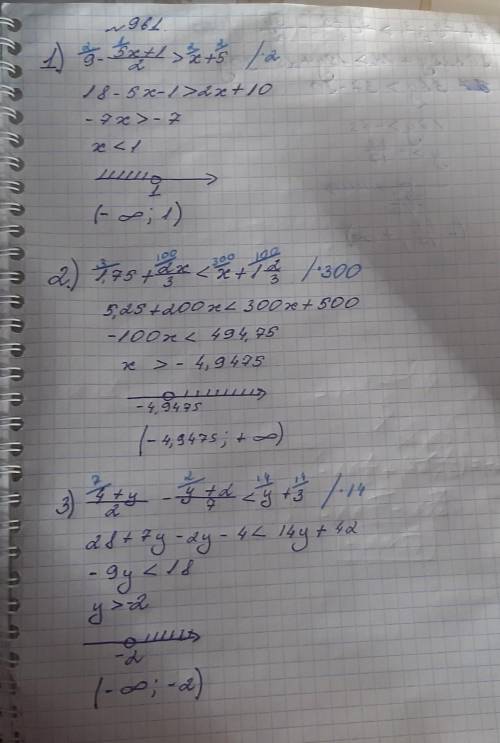 №961
1) 9 - (5x+1)/2 > x + 5 /·2
18 - 5x - 1 > 2x + 10
-7x > -7
x < 1
1
(-∞; 1)
2.) 1,75 + 2x/3 < x + 1 2/3 /·300
5,25 + 200x < 300x + 500
-100x < 494,75
x > -4,9475
-4,9475
(-4,9475; +∞)
3) (4+y)/2 - (y+2)/7 < y + 3 /·14
28 + 7y - 2y - 4 < 14y + 42
-9y < 18
y > -2
-2
(-∞; -2)